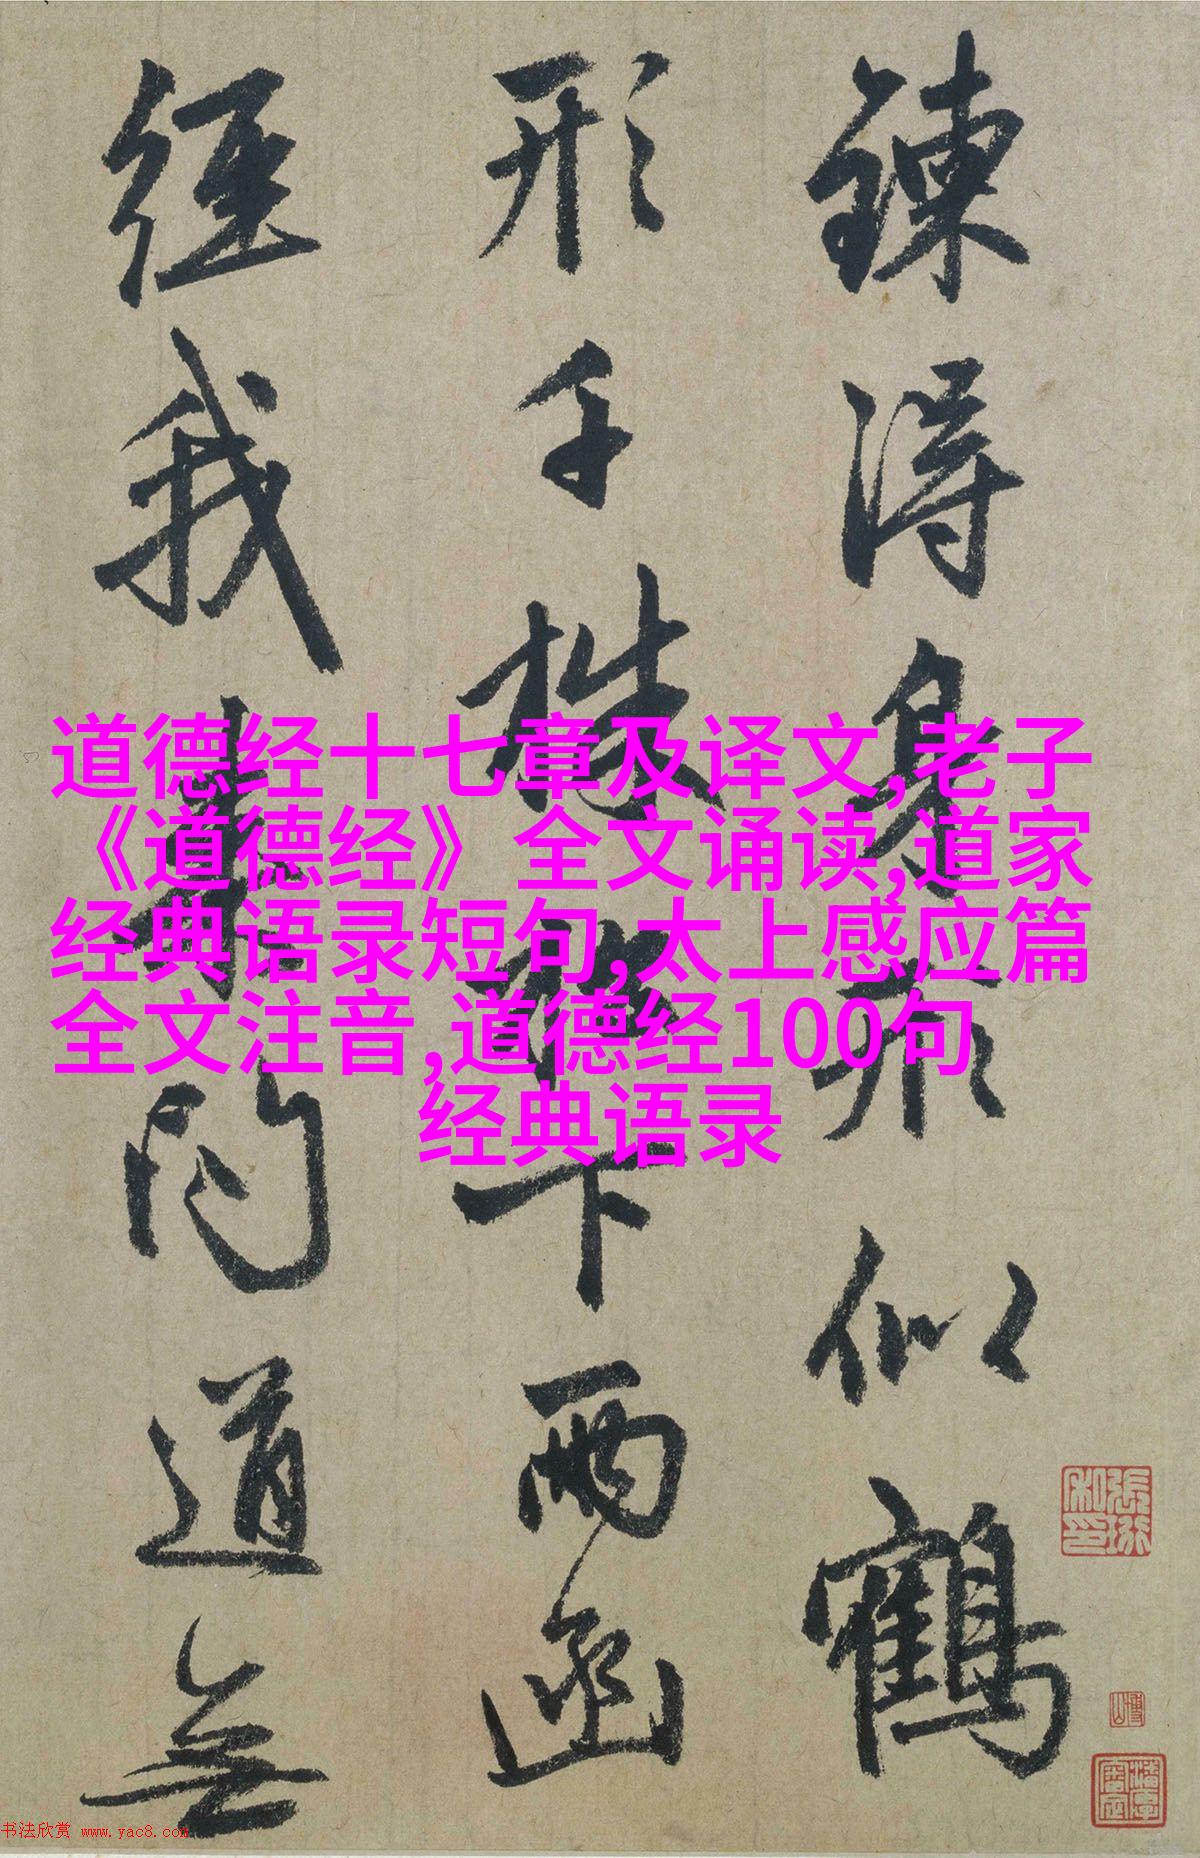 鍊得身形似鶴
形千株松下兩函
經我來問道無
道德经十七章及译文,老子
《道德经》全文诵读,道家
经典语录短句,太上感应篇
全文注音,道德经100句
经典语录
张珩私印
书法欣赏 www.yac8.com